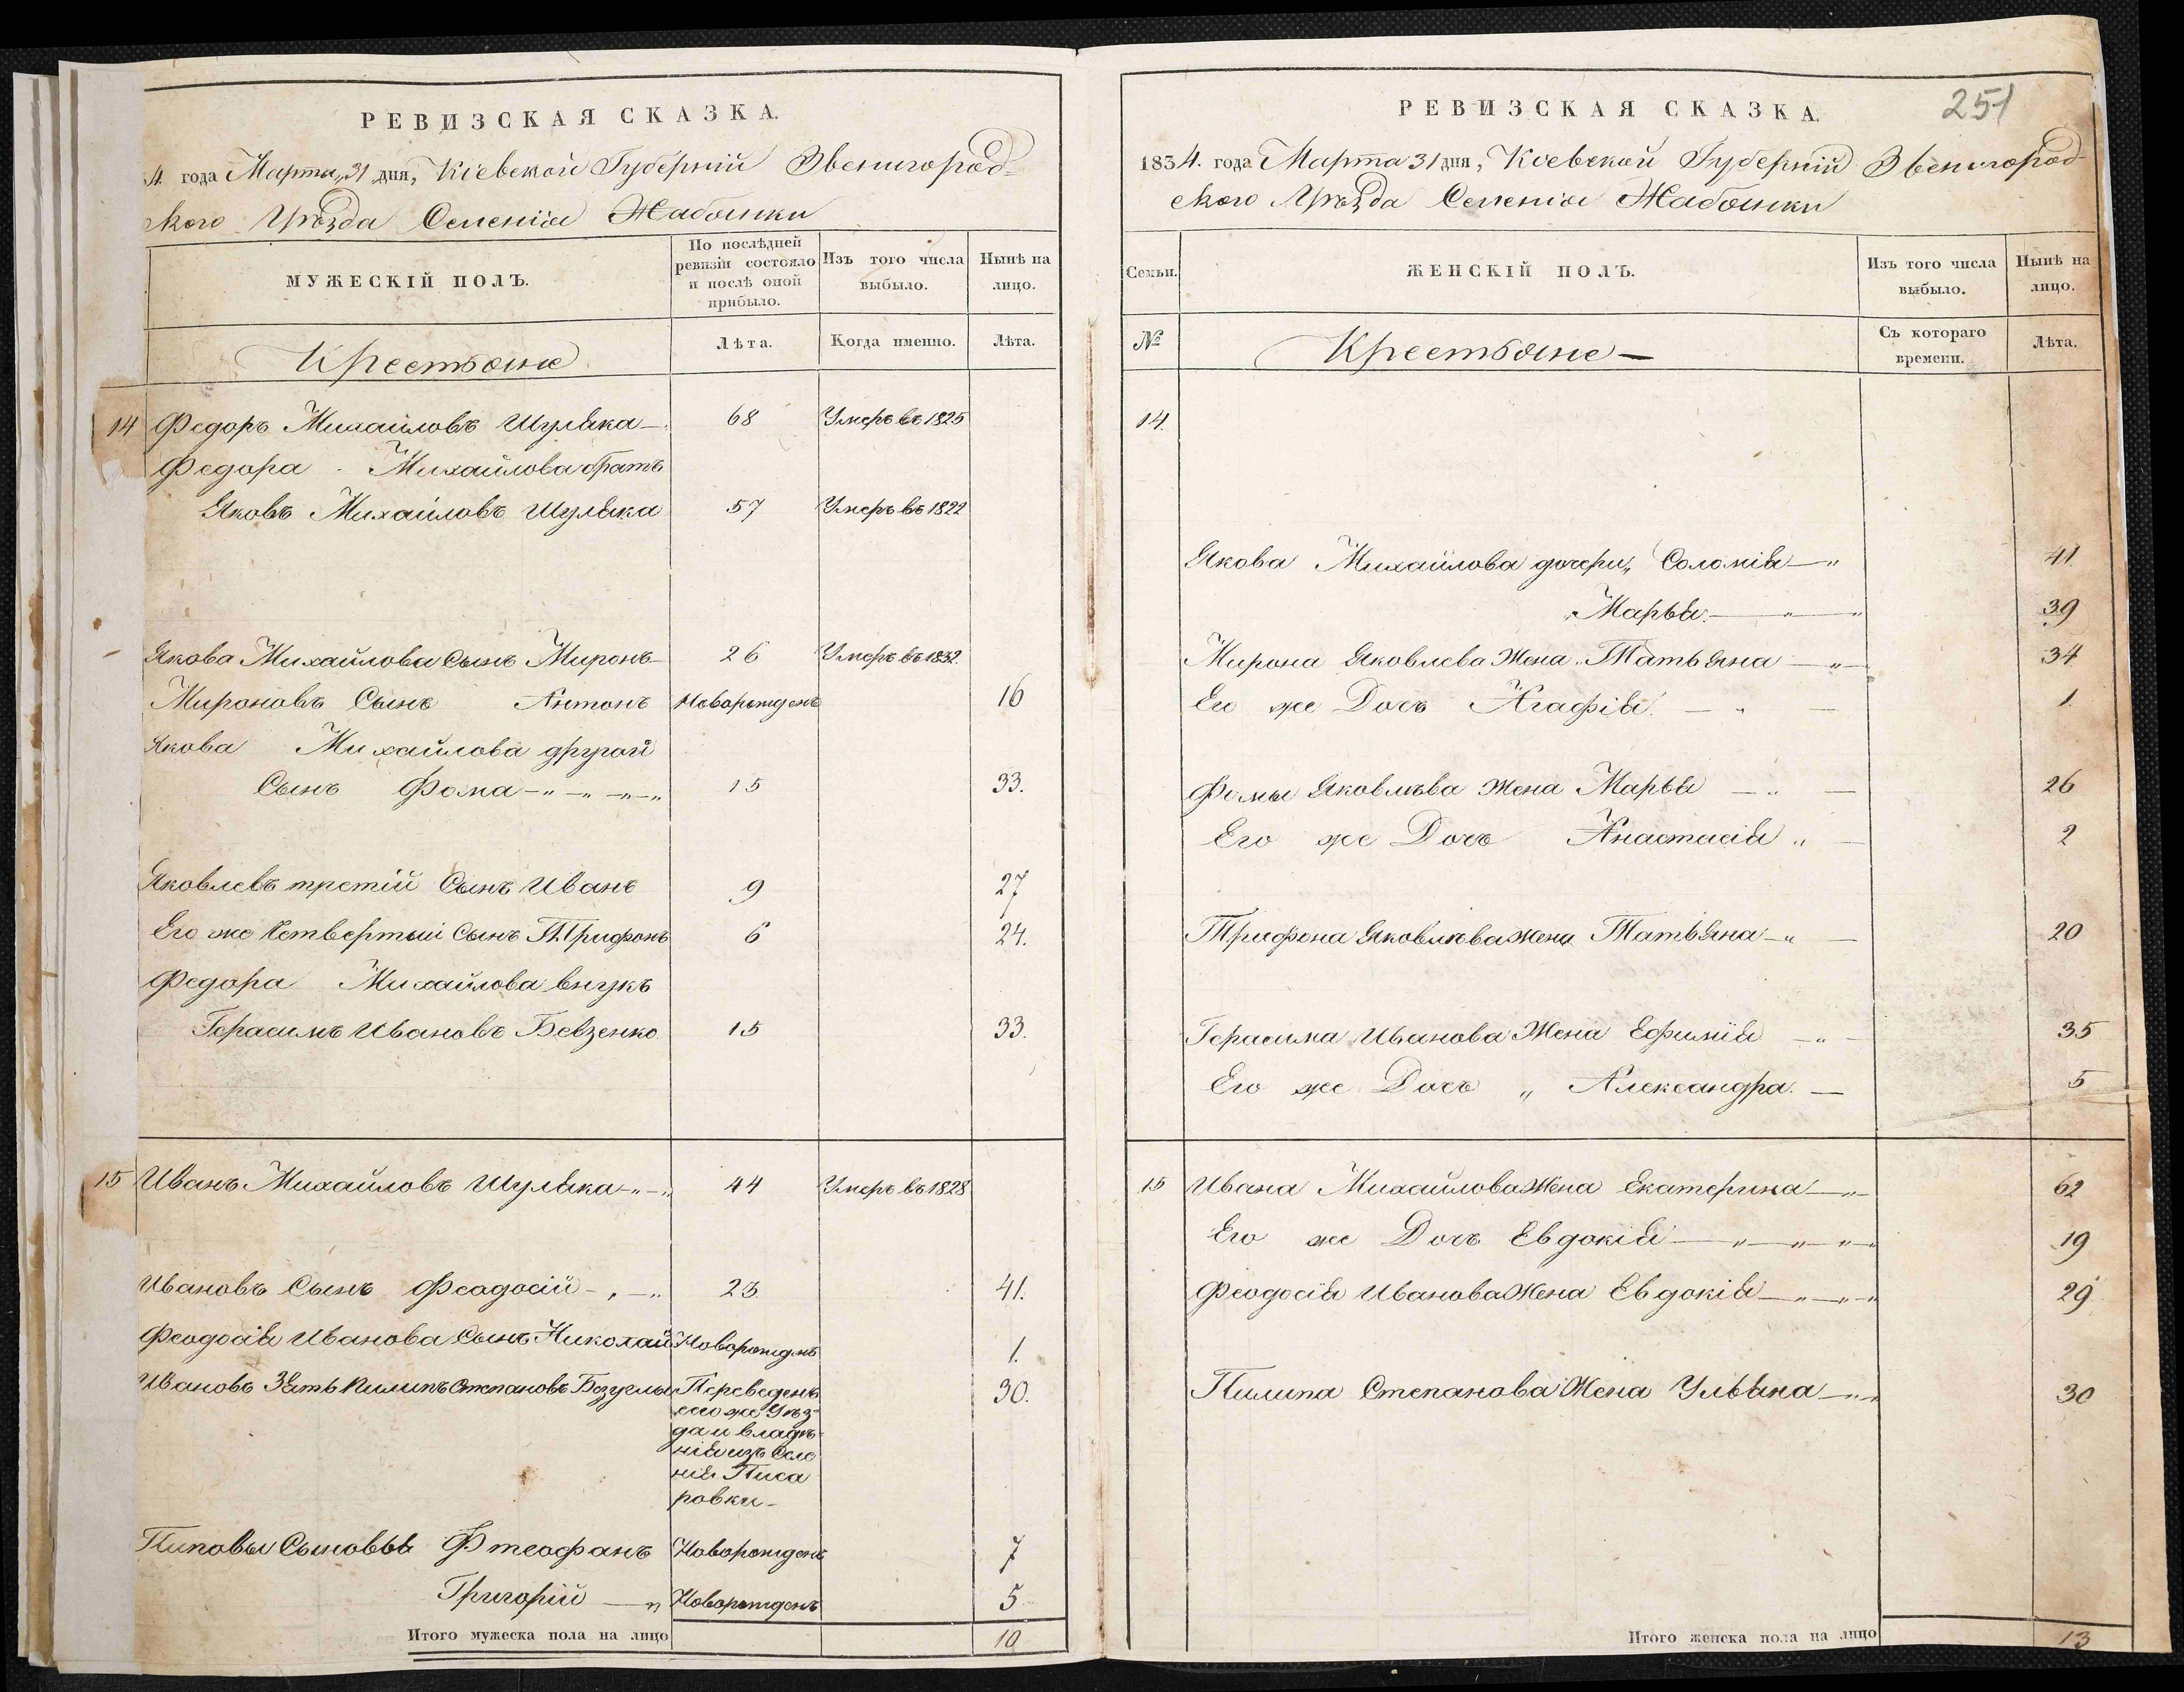 РЕВИЗСКАЯ СКАЗКА.
4. года Марта 31 дня, Кіевской Губерніи Звенигород-
ского Уѣзда Селенія Жабянки
МУЖЕСКІЙ ПОЛЪ.
По послѣдней ревизіи состояло и послѣ оной прибыло.
Изъ того числа выбыло.
Нынѣ на лицо.
Крестьяне
Лѣта.
Когда именно.
Лѣта.
14 Федоръ Михайловъ Шуляка 68 Умеръ въ 1825
Федора Михайлова братъ
Яковъ Михайловъ Шуляка 57 Умеръ въ 1822
Якова Михайлова Сынъ Миронъ 26 Умеръ въ 1832.
Мироновъ Сынъ Антонъ Новорожденъ 16
Якова Михайлова другой
Сынъ Фома 15 33.
Яковлевъ третій Сынъ Иванъ 9 27
Его же Четвертый Сынъ Трифонъ 6 24.
Федора Михайлова внукъ
Герасимъ Ивановъ Бевзенко 15 33.
15 Иванъ Михайловъ Шуляка 44 Умеръ въ 1828
Ивановъ Сынъ Феодосій 23. 41.
Феодосія Иванова Сынъ Николай Новорожднъ 1.
Ивановъ Зять Пилипъ Степановъ Переведенъ 30.
сего же Уѣз-
да и владѣ-
нія изъ Селе
нія Писа
ровки
Пиповы Сыновья Фтеофанъ Новорожденъ 7
Григорій Новорожденъ 5
Итого мужеска пола на лицо 10
РЕВИЗСКАЯ СКАЗКА.
251
1834. года Марта 31 дня, Кіевской Губерніи Звенигород-
ского Уѣзда Селенія Жабянки
Семьи.
ЖЕНСКІЙ ПОЛЪ.
Изъ того числа выбыло.
Нынѣ на лицо.
№
Крестьяне
Съ котораго времени.
Лѣта.
14.
Якова Михайлова дочери, Соломія 41.
Марья 39
Мирона Яковлева Жена Татьяна 34
Его же Дочь Агафія. 1.
Фомы Яковлѣва Жена Марья 26
Его же Дочь Анастасія 2
Трифона Яковлѣва жена Татьяна 20
Герасима Иванова Жена Ефимія 35
Его же Дочь Александра. 5
15 Ивана Михайлова Жена Екатерина 62
Его же Дочь Евдокія 19
Феодосія Иванова Жена Евдокія 29
Пилипа Степанова Жена Ульяна 30
Итого женска пола на лицо 13